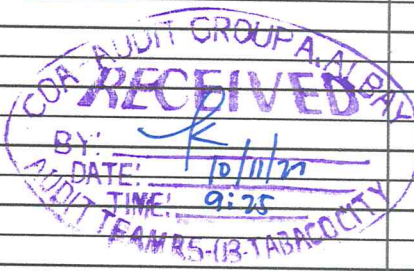 COA - AUDIT GROUP A, ALBAY
RECEIVED
BY:
DATE: 10/11/21
TIME: 9:25
AUDIT TEAM R5-03-TABACO CITY